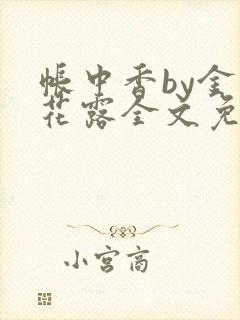 帐中香by金
花露全文免
小宫商